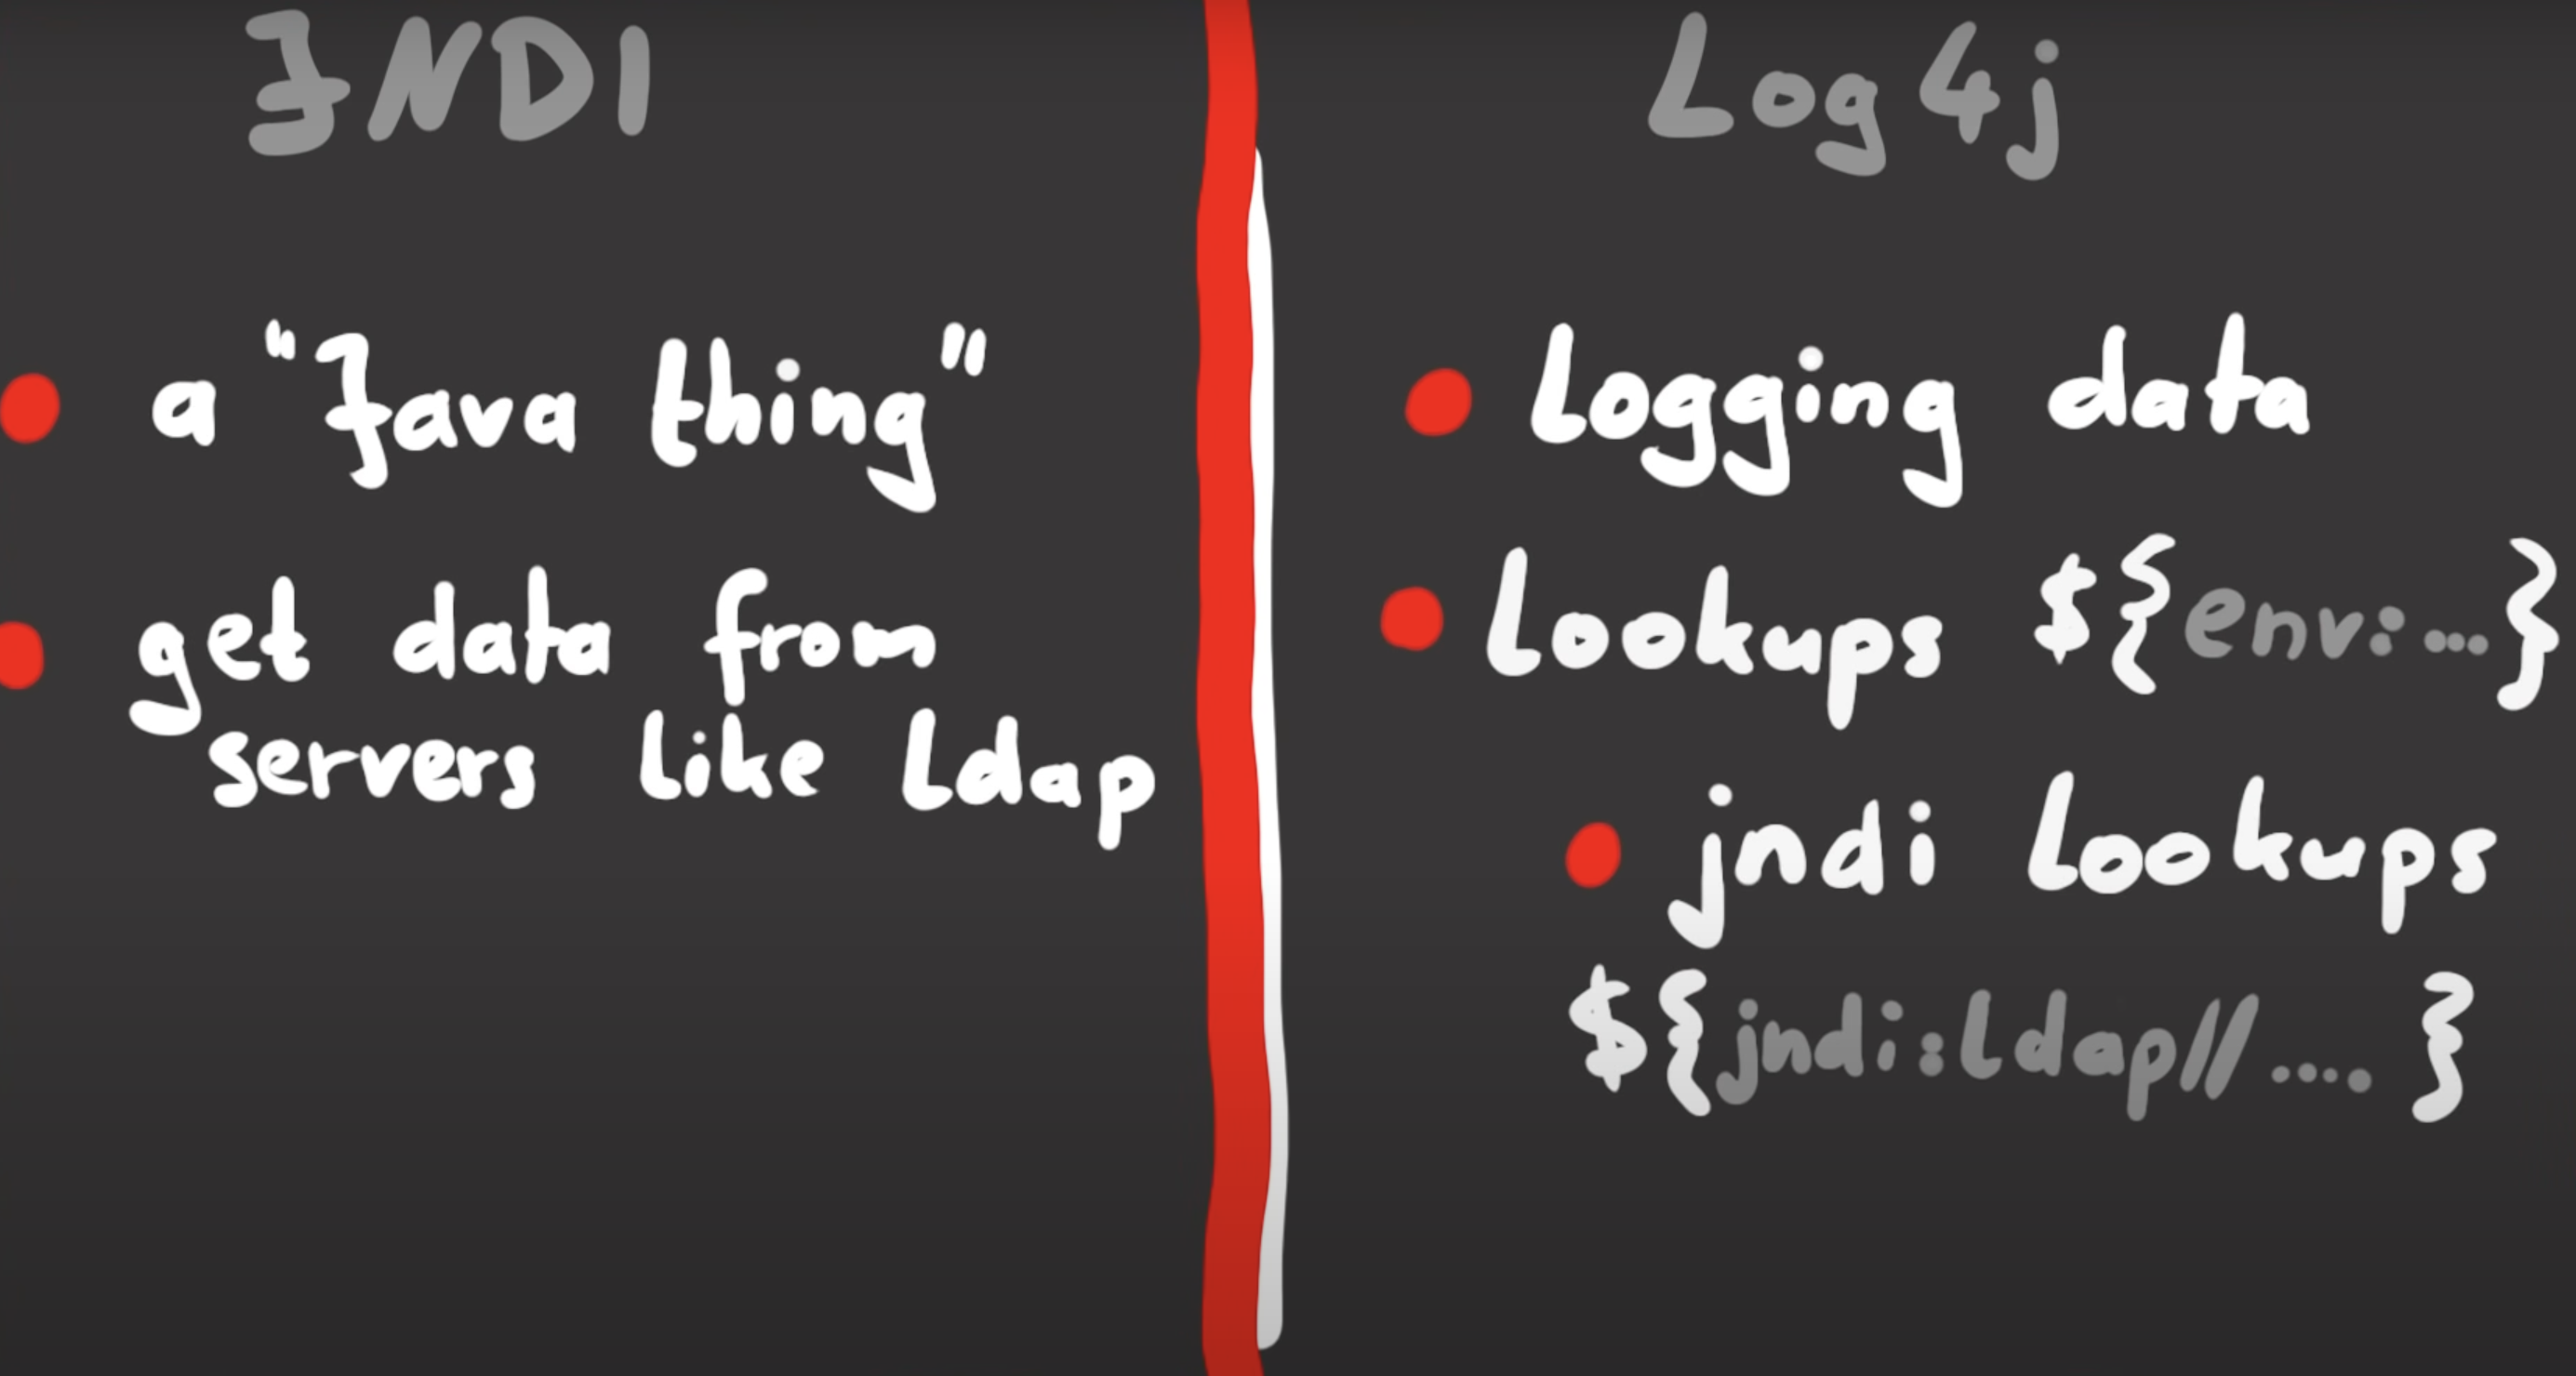 JNDI
a "Java thing"
get data from
servers like ldap
Log4j
Logging data
Lookups ${env:...}
jndi Lookups
${jndi:ldap//....}